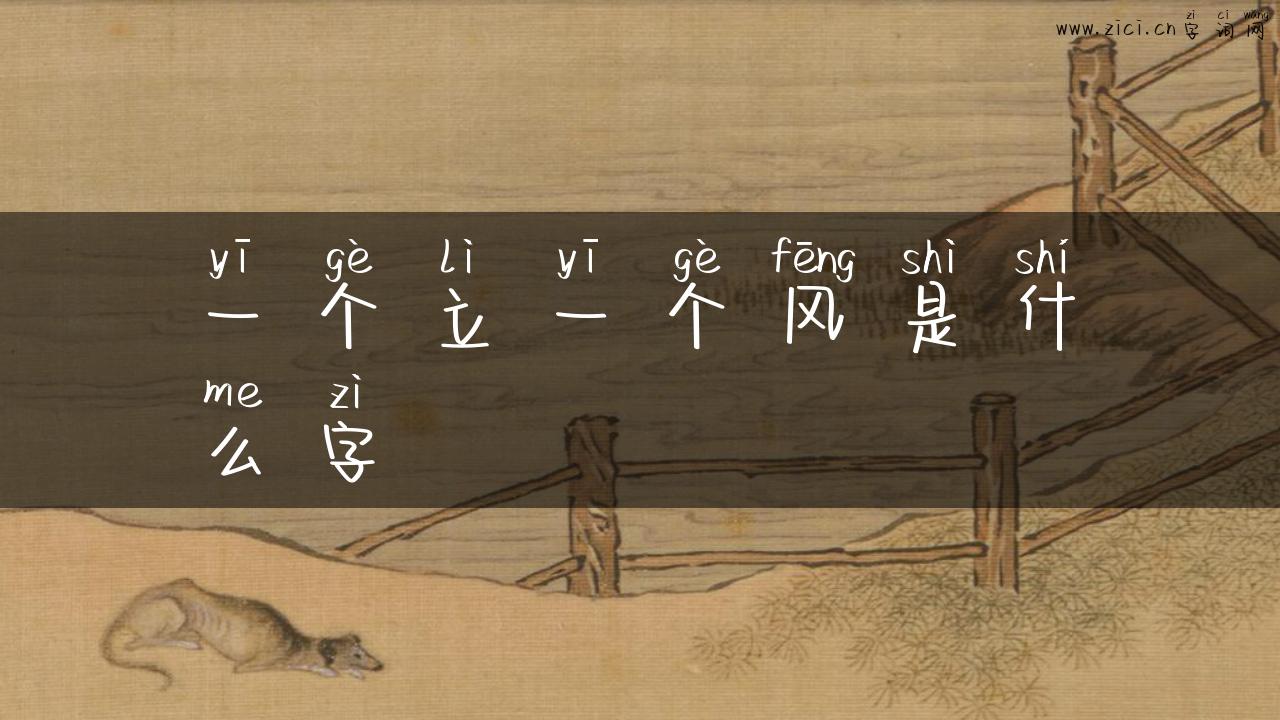 zi ci wang
www.zici.cn 字词网
yī gè lì yī gè fēng shì shí
一个立一个风是什
me zì
么字